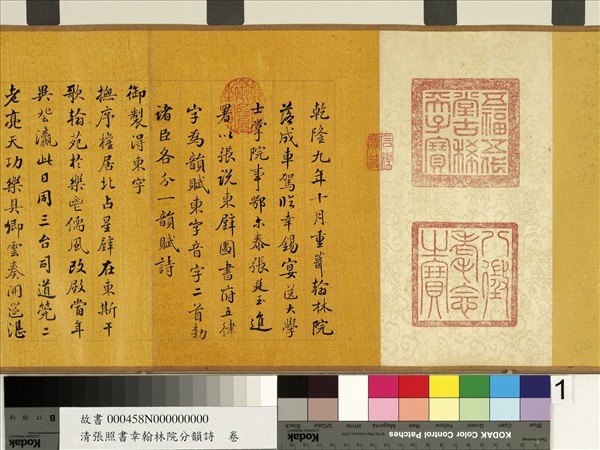 五福五代
堂古稀
天子寶
八徵
耄念
之寶
乾隆九年十月重葺翰林院
落成車駕臨幸錫宴送大學
士掌院事鄂尔泰張廷玉進
署以張說東壁圖書府五律
字為韻賦東字音字二首勅
諸臣各分一韻賦詩
御製得東字
撫序權居北占星壁在東斯干
歌翰苑於樂邕儒風改殿當年
異登瀛此日同三台司道筦二
老亮天功樂具卿雲奏開筵湛
1
故書 000458N000000000
清張照書幸翰林院分韻詩 卷
Kodak
KODAK Color Control Patches
Blue Cyan Green Yellow Red Magenta White 3/Color Black
B 17 18 19